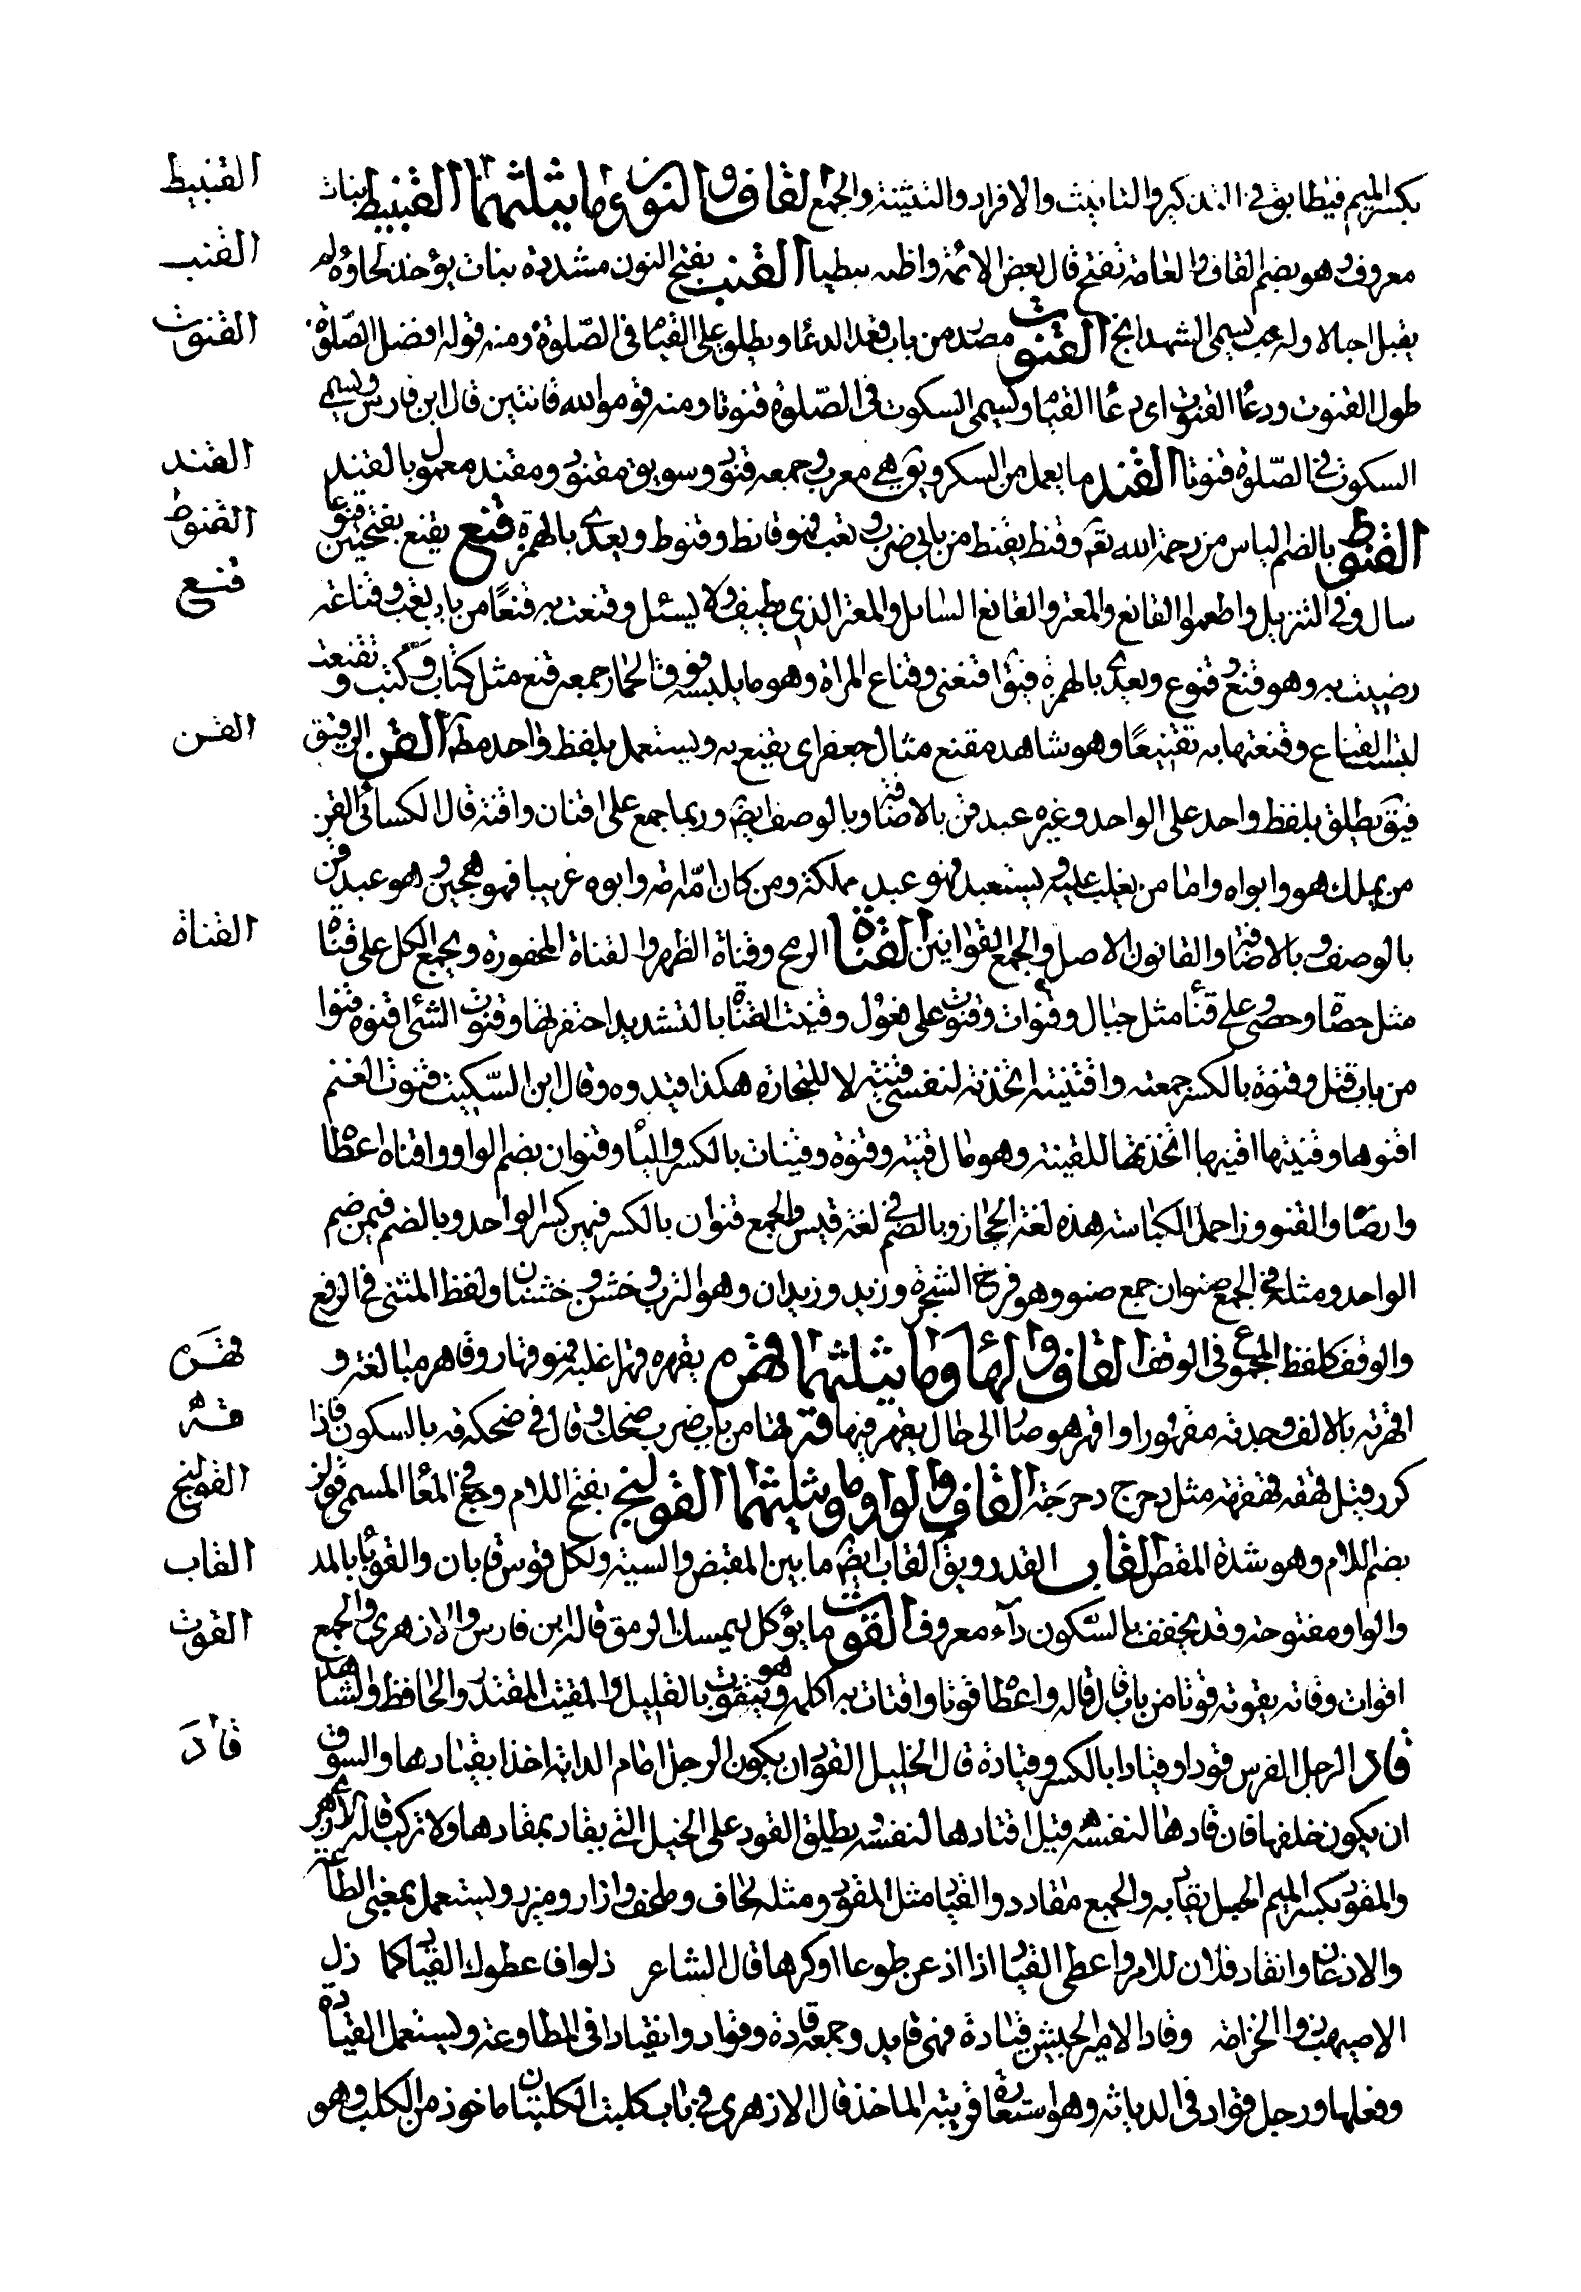 بكسر الميم فيطابق في التذكير والتانيث والافراد والتثنية والجمع القاف والنون وما يثلثهما القنبيط نبات
القنبيط
معروف وهو بضم القاف والعامة تفتح قال بعض الائمة واظنه نبطيا القنب بفتح النون مشددة نبات يؤخذ لحاؤه ثم
القنب
يفتل حبالا وله حب يسمى الشهدانج القنوت مصدر من باب قعد الدعا ويطلق على القيام في الصلوة ومنه قوله افضل الصلوة
القنوت
طول القنوت ودعا القنوت اى دعا القيام ويسمى السكوت في الصلوة قنوتا ومنه قوموا لله قانتين قال ابن فارس ويسمى
السكوت في الصلوة قنوتا القند ما يعمل من السكر ويق هي معرب وجمعه قنود وسويق مقنود ومقند معمول بالقند
القند
القنوط بالضم الياس من رحمة الله تع وقنط يقنط من بابي ضرب وتعب فهو قانط وقنوط ويعدى بالهمزة قنع يقنع بفتحتين قنوعا
القنوط
قنع
سال وفي التنزيل واطعموا القانع والمعتر والقانع السائل والمعتر الذي يطيف ولا يسئل وقنعت به قنعا من باب تعب وقناعة
رضيت به وهو قنع وقنوع ويعدى بالهمزة فيق اقنعني وقناع المراة وهو ما يلبسه فوق الخمار جمعه قنع مثل كتاب وكتب وتقنعت
لبست القناع وقنعتها به تقنيعا وهو شاهد مقنع مثال جعفر اى يقنع به ويستعمل بلفظ واحد مطلقا القن الرقيق
القن
فيق يطلق بلفظ واحد على الواحد وغيره عبد قن بالاضافة وبالوصف ايضا وربما جمع على اقنان واقنة قال الكسائي القن
من يملك هو وابواه واما من يغلب عليه ويستعبد فهو عبد مملكة ومن كان امه امة وابوه عربيا فهو هجين وهو عبد قن
بالوصف وبالاضافة والقانون الاصل والجمع القوانين القناة الرمح وقناة الظهر والقناة المحفورة ويجمع الكل على قناة
القناة
مثل حصاة وحصى وعلى قناء مثل جبال وقنوات وقنوت على فعول وقنيت القناة بالتشديد احتفرتها وقنوت الشئ اقنوه قنوا
من باب قتل وقنوة بالكسر جمعته واقتنيته اتخذته لنفسي قنية لا للتجارة هكذا قيدوه وقال ابن السكيت قنوت الغنم
اقنوها وقنيتها اقنيها اتخذتها للقينة وهو مال قنية وقنوة وقنيان بالكسر والياء وقنوان بضم الواو واقناه اعطاه
وارضاه والقنو وزان حمل الكباسة هذه لغة الحجاز وبالضم في لغة قيس والجمع قنوان بالكسر فيمن كسر الواحد وبالضم فيمن ضم
الواحد ومثله في الجمع صنوان جمع صنو وهو فرخ الشجرة وزيد وزيدان وهو الترب وخشن وخشنان ولفظ المثنى في الرفع
والوقف كلفظ المجموع في الوقف القاف والهاء وما يثلثهما قهره يقهره قهرا غلبه فهو قهار وقاهر مبالغة و
قهره
اقهرته بالالف وجدته مقهورا واقهر هو صار الى حال يقهر فيها قه قها من باب ضرب ضحك وقال في ضحكه قه بالسكون فاذا
قه
كرر قيل قهقه قهقهة مثل دحرج دحرجة القاف والواو وما يثلثهما القولنج بفتح اللام وجع في المعا المسمى قولن
القولنج
بضم اللام وهو شدة المغص القاب القدر ويق القاب ايضا ما بين المقبض والسية ولكل قوس قابان والقوباء بالمد
القاب
والواو مفتوحة وقد يخفف بالسكون داء معروف القوت ما يؤكل ليمسك الرمق قاله ابن فارس والازهري والجمع
القوت
اقوات وقاته يقوته قوتا من باب قال قاله واعطاه قوتا واقتات به اكله وهو يتقوت بالقليل والمقيت المقتدر والحافظ والشاهد
قاد الرجل الفرس قودا وقيادا بالكسر وقيادة قال الخليل القود ان يكون الرجل امام الدابة اخذا بقيادها والسوق
قاد
ان يكون خلفها فان قادها لنفسه قيل اقتادها لنفسه ويطلق القود على الخيل التي يقاد بمقادها ولا تركب قاله الازهري
والمقود بكسر الميم الحبل يقاد به والجمع مقاود والقياد مثل المقود ومثله لحاف وملحف وازار ومئزر ويستعمل بمعنى الطاعة
والاذعان وانقاد فلان للامر واعطى القياد اذا اذعن طوعا او كرها قال الشاعر ذلوا فاعطوك القياد كما ذل
الاصيهب ذو الخزامة وقاد الامير الجيش قيادة فهو قايد وجمعه قادة وقواد وانقياد انقيادا في المطاوعة ويستعمل القيادة
وفعلها ورجل قواد في الدياثة وهو استعارة قريبة الماخذ قال الازهري في باب كلتب الكلتبان ماخوذ من الكلب وهو